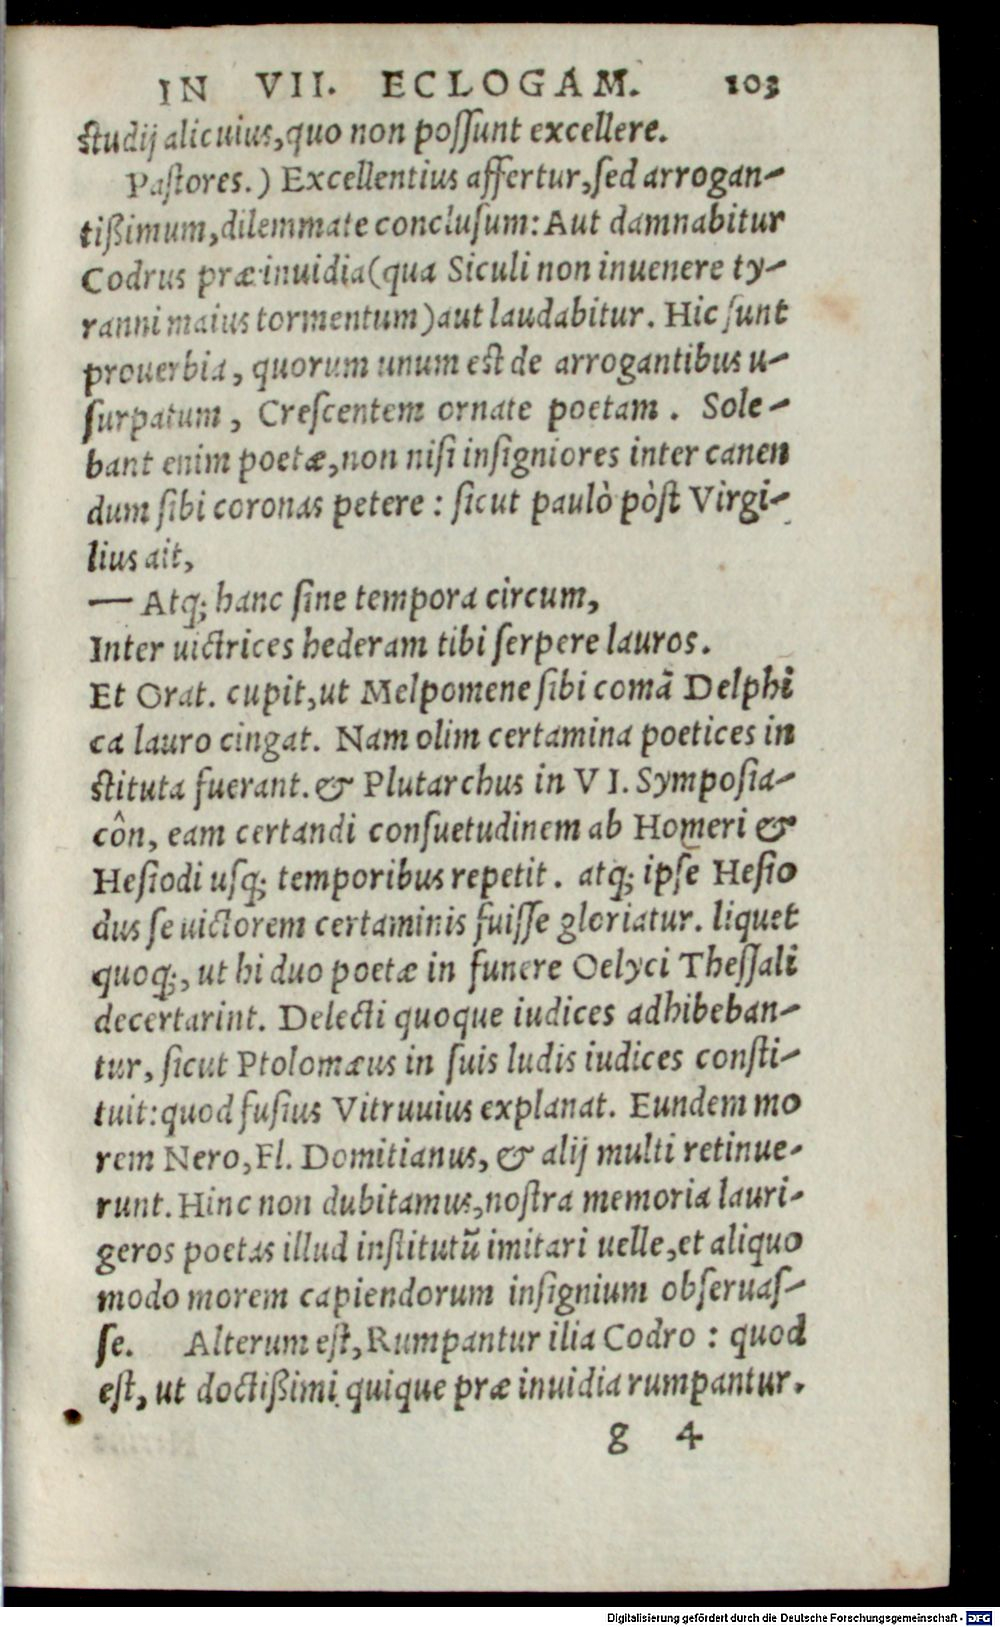 IN VII. ECLOGAM. 103
studij alicuius, quo non possunt excellere.
Pastores.) Excellentius affertur, sed arrogan-
tißimum, dilemmate conclusum: Aut damnabitur
Codrus præ inuidia (qua Siculi non inuenere ty-
ranni maius tormentum) aut laudabitur. Hic sunt
prouerbia, quorum unum est de arrogantibus u-
surpatum, Crescentem ornate poetam. Sole-
bant enim poetæ, non nisi insigniores inter canen
dum sibi coronas petere: sicut paulò pòst Virgi-
lius ait,
— Atq; hanc sine tempora circum,
Inter uictrices hederam tibi serpere lauros.
Et Orat. cupit, ut Melpomene sibi comã Delphi
ca lauro cingat. Nam olim certamina poetices in
stituta fuerant. & Plutarchus in VI. Symposia-
côn, eam certandi consuetudinem ab Homeri &
Hesiodi usq; temporibus repetit. atq; ipse Hesio
dus se uictorem certaminis fuisse gloriatur. liquet
quoq;, ut hi duo poetæ in funere Oelyci Thessali
decertarint. Delecti quoque iudices adhibeban-
tur, sicut Ptolomæus in suis ludis iudices consti-
tuit: quod fusius Vitruuius explanat. Eundem mo
rem Nero, Fl. Domitianus, & alij multi retinue-
runt. Hinc non dubitamus, nostra memoria lauri-
geros poetas illud institutũ imitari uelle, et aliquo
modo morem capiendorum insignium obseruas-
se. Alterum est, Rumpantur ilia Codro: quod
est, ut doctißimi quique præ inuidia rumpantur.
g 4
Digitalisierung gefördert durch die Deutsche Forschungsgemeinschaft - DFG